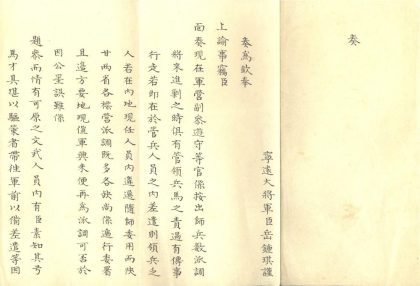 奏
寧遠大將軍臣岳鍾琪謹
奏為欽奉
上諭事竊臣
面奏現在軍營副參遊守等官係按出師兵數派調
將來進剿之時俱有管領兵馬之責遇有傳事
行走若即在於管兵人員之內差遣則領兵乏
人若在內地現任人員內遴選隨師委用而陝
甘兩省各標營派調既多各缺尚係遞行委署
且邊方要地現值軍興未便再為派調可否於
因公罣誤雖係
題參而情有可原之文武人員內有臣素知其弓
馬才具堪以驅策者帶往軍前以備差遣等因